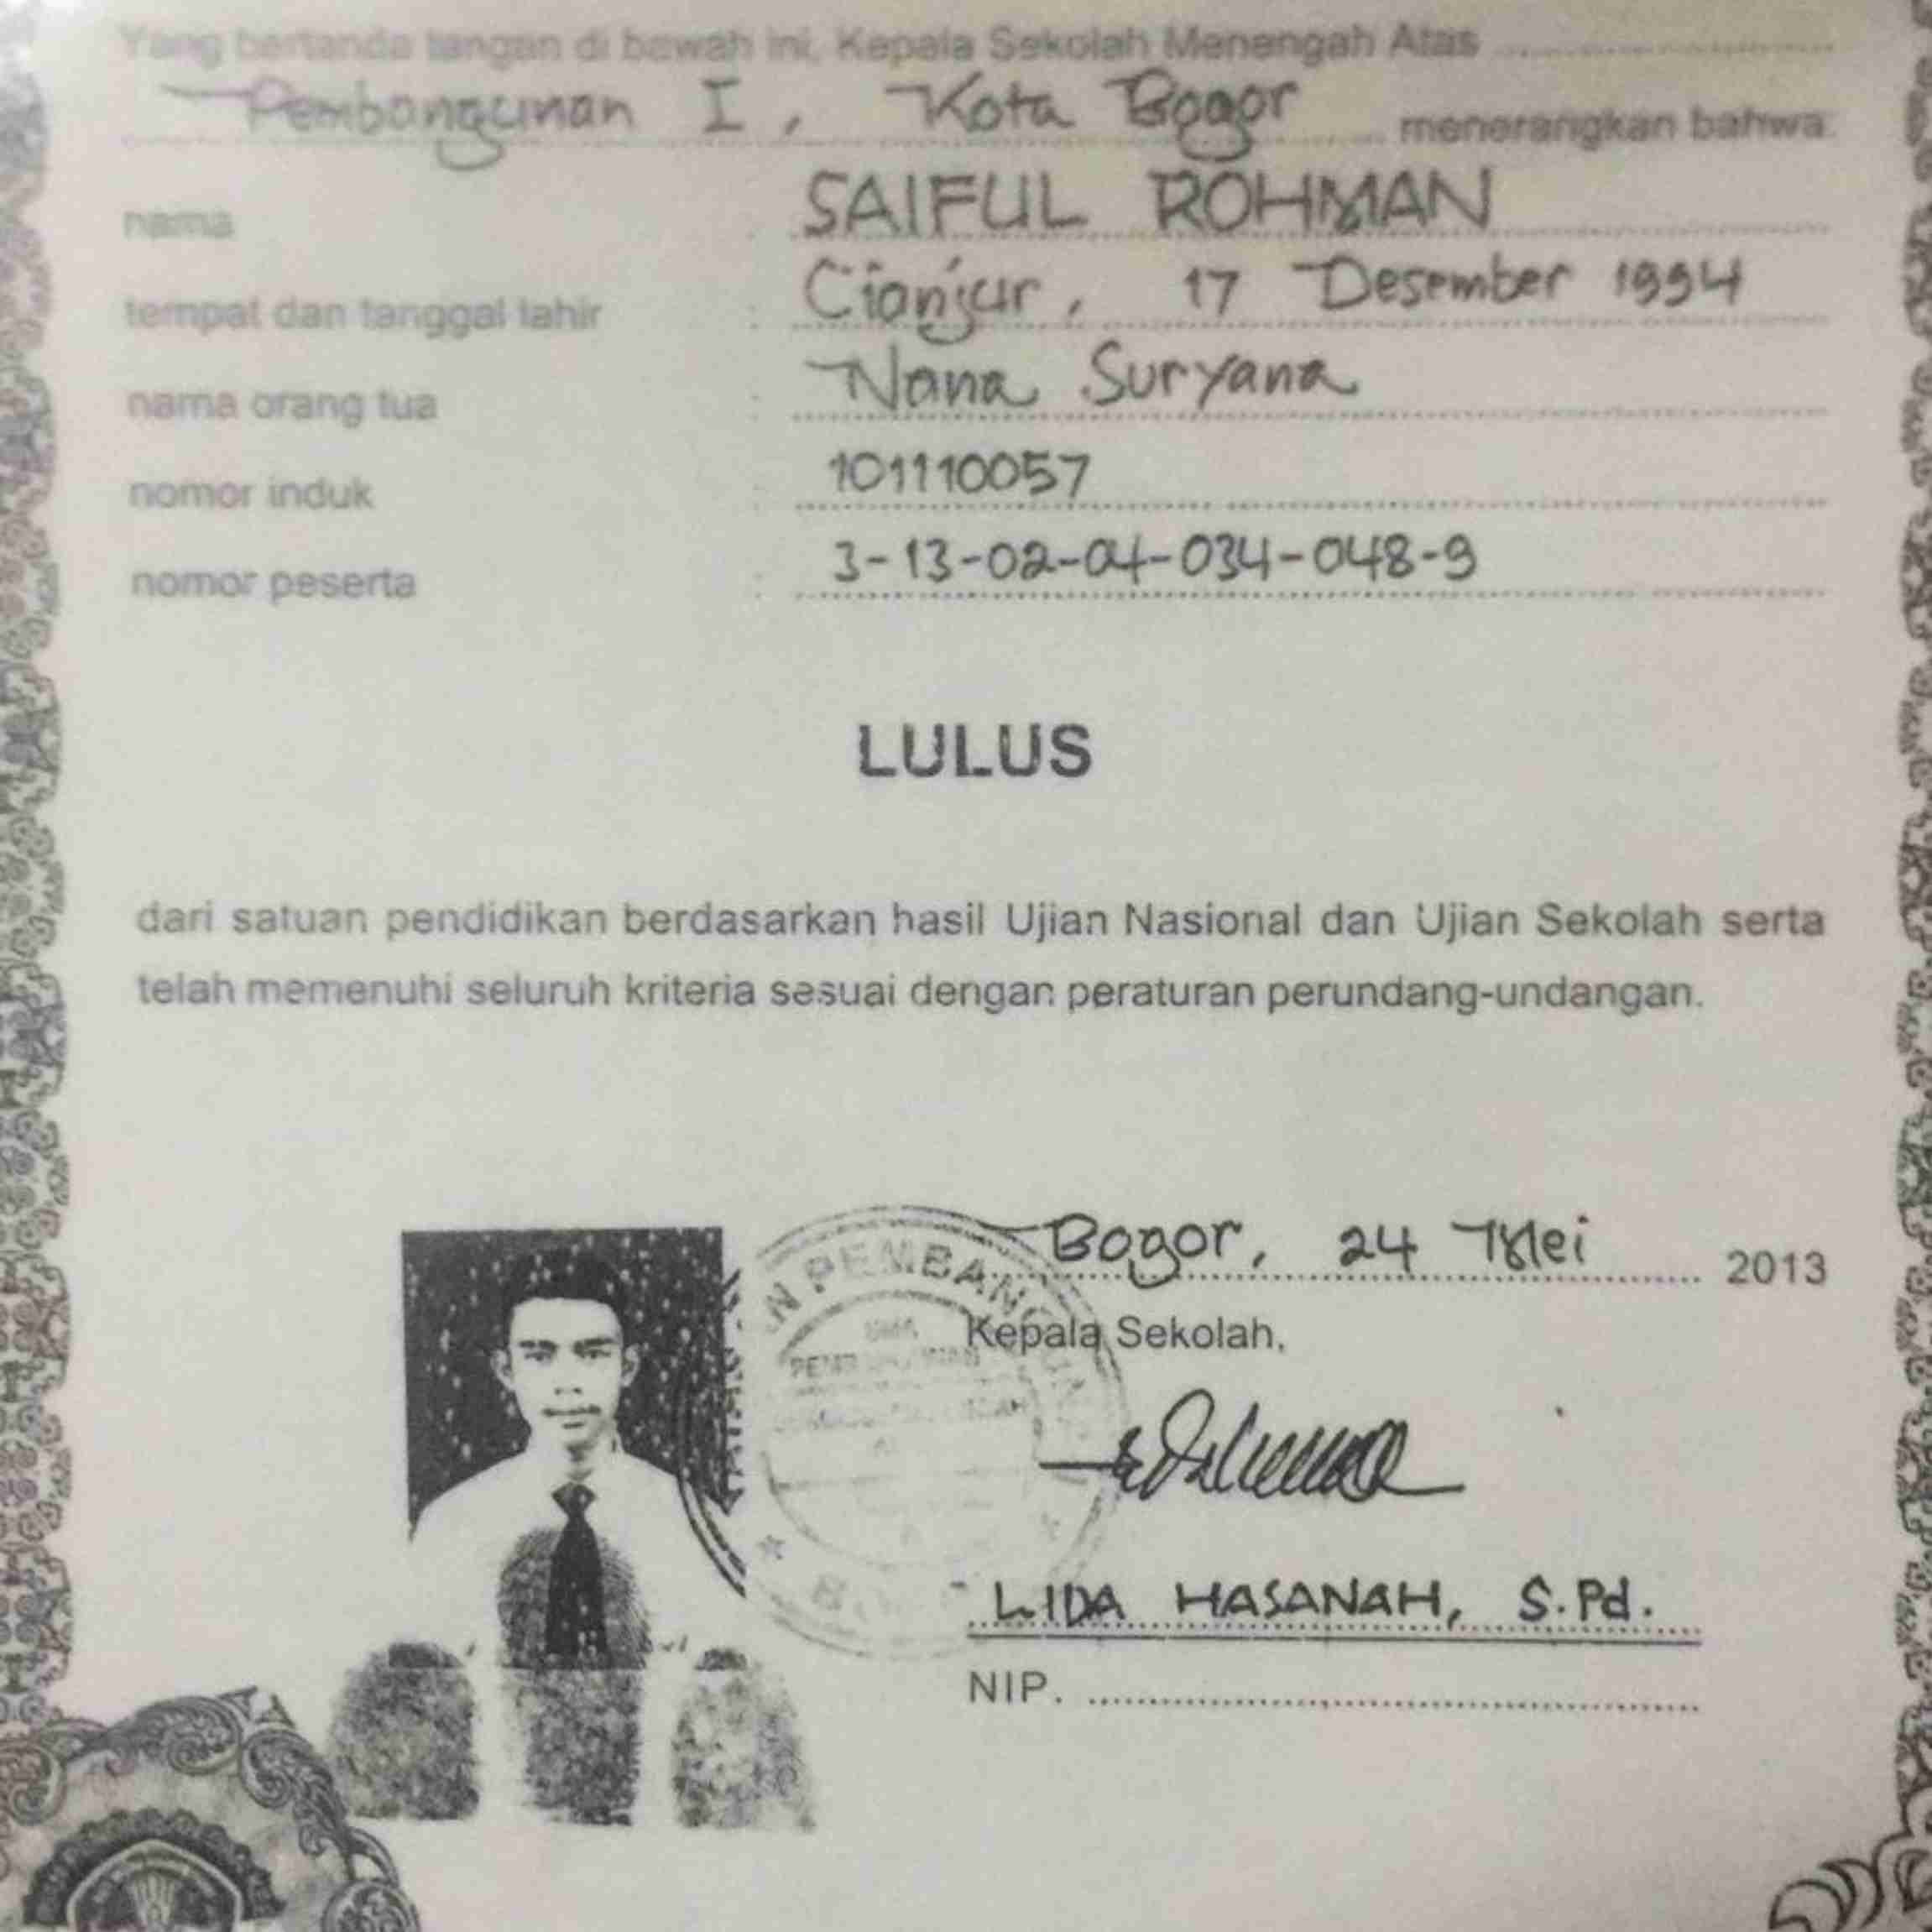 Yang bertanda tangan di bawah ini, Kepala Sekolah Menengah Atas
Pembangunan I, Kota Bogor menerangkan bahwa:
nama : SAIFUL ROHMAN
tempat dan tanggal lahir : Cianjur, 17 Desember 1994
nama orang tua : Nana Suryana
nomor induk : 101110057
nomor peserta : 3-13-02-04-034-048-9
LULUS
dari satuan pendidikan berdasarkan hasil Ujian Nasional dan Ujian Sekolah serta
telah memenuhi seluruh kriteria sesuai dengan peraturan perundang-undangan.
Bogor, 24 Mei 2013
Kepala Sekolah,
LIDA HASANAH, S.Pd.
NIP.